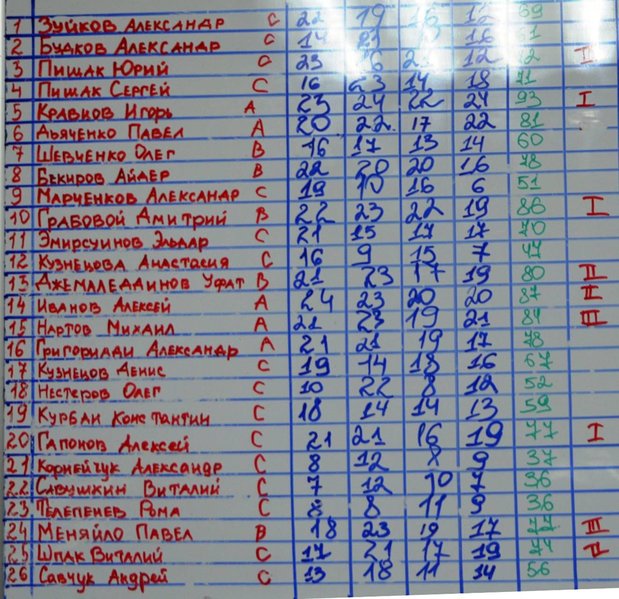 1 Зуйков Александр С 22 19 12 69
2 Будков Александр С 14 21 16 61
3 Пищак Юрий С 23 16 12 I
4 Пищак Сергей С 16 23 14 18 71
5 Кравцов Игорь А 23 24 22 24 93 I
6 Дьяченко Павел А 20 22 17 22 81
7 Шевченко Олег В 16 17 13 14 60
8 Бекиров Айдер В 22 20 20 16 78
9 Марченков Александр С 19 10 16 6 51
10 Грабовой Дмитрий В 22 23 22 19 86 I
11 Эмирсуинов Эльдар С 21 15 17 17 70
12 Кузнецова Анастасия С 16 9 15 7 47
13 Джемаледдинов Уфат В 21 23 17 19 80 II
14 Иванов Алексей А 24 23 20 20 87 II
15 Нартов Михаил А 21 23 19 21 84 III
16 Григориади Александр А 21 21 19 17 78
17 Кузнецов Денис С 19 14 18 16 67
18 Нестеров Олег С 10 22 8 12 52
19 Курбан Константин С 18 14 14 13 59
20 Гапонов Алексей С 21 21 16 19 77 I
21 Корнейчук Александр С 8 12 8 9 37
22 Савушкин Виталий С 7 12 10 7 36
23 Телепенев Рома С 8 8 11 9 36
24 Меняйло Павел В 18 23 19 17 77 III
25 Шпак Виталий С 17 21 17 19 74 II
26 Савчук Андрей С 13 18 11 14 56